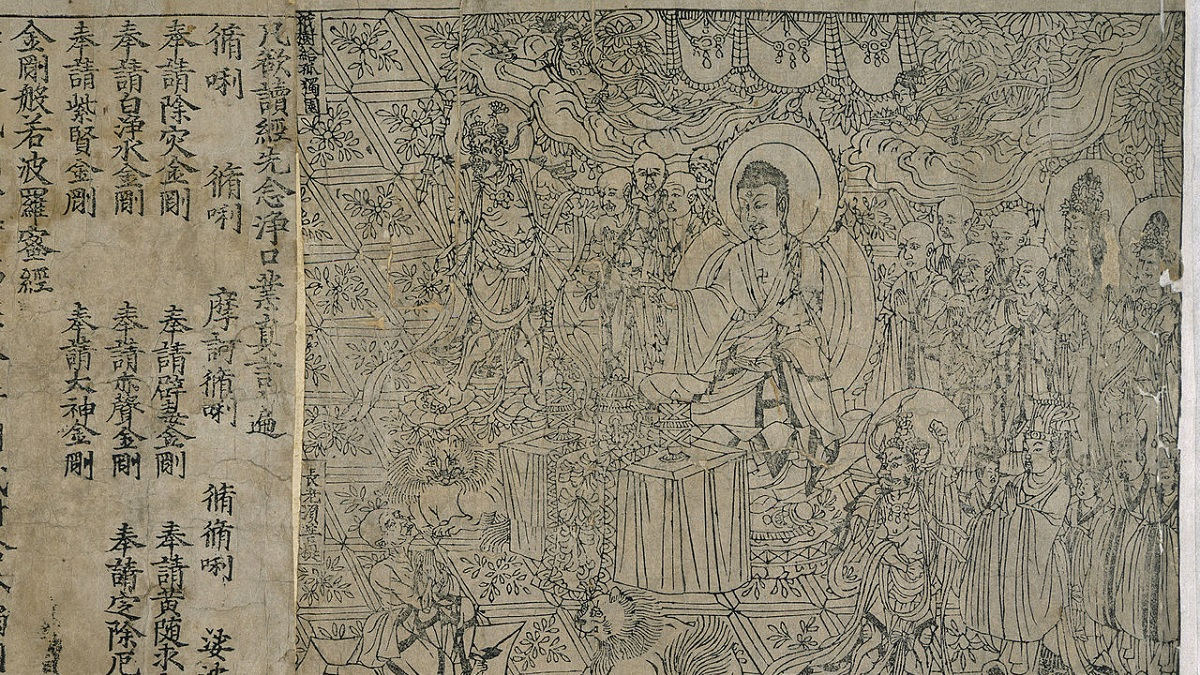 祇樹給孤獨園
長老須菩提
凡欲讀經先念淨口業真言遍
脩唎 脩唎 摩訶脩唎 脩脩唎 娑
奉請除災金剛 奉請辟毒金剛 奉請黃隨求
奉請白淨水金剛 奉請赤聲金剛 奉請定除厄
奉請紫賢金剛 奉請大神金剛
金剛般若波羅蜜經